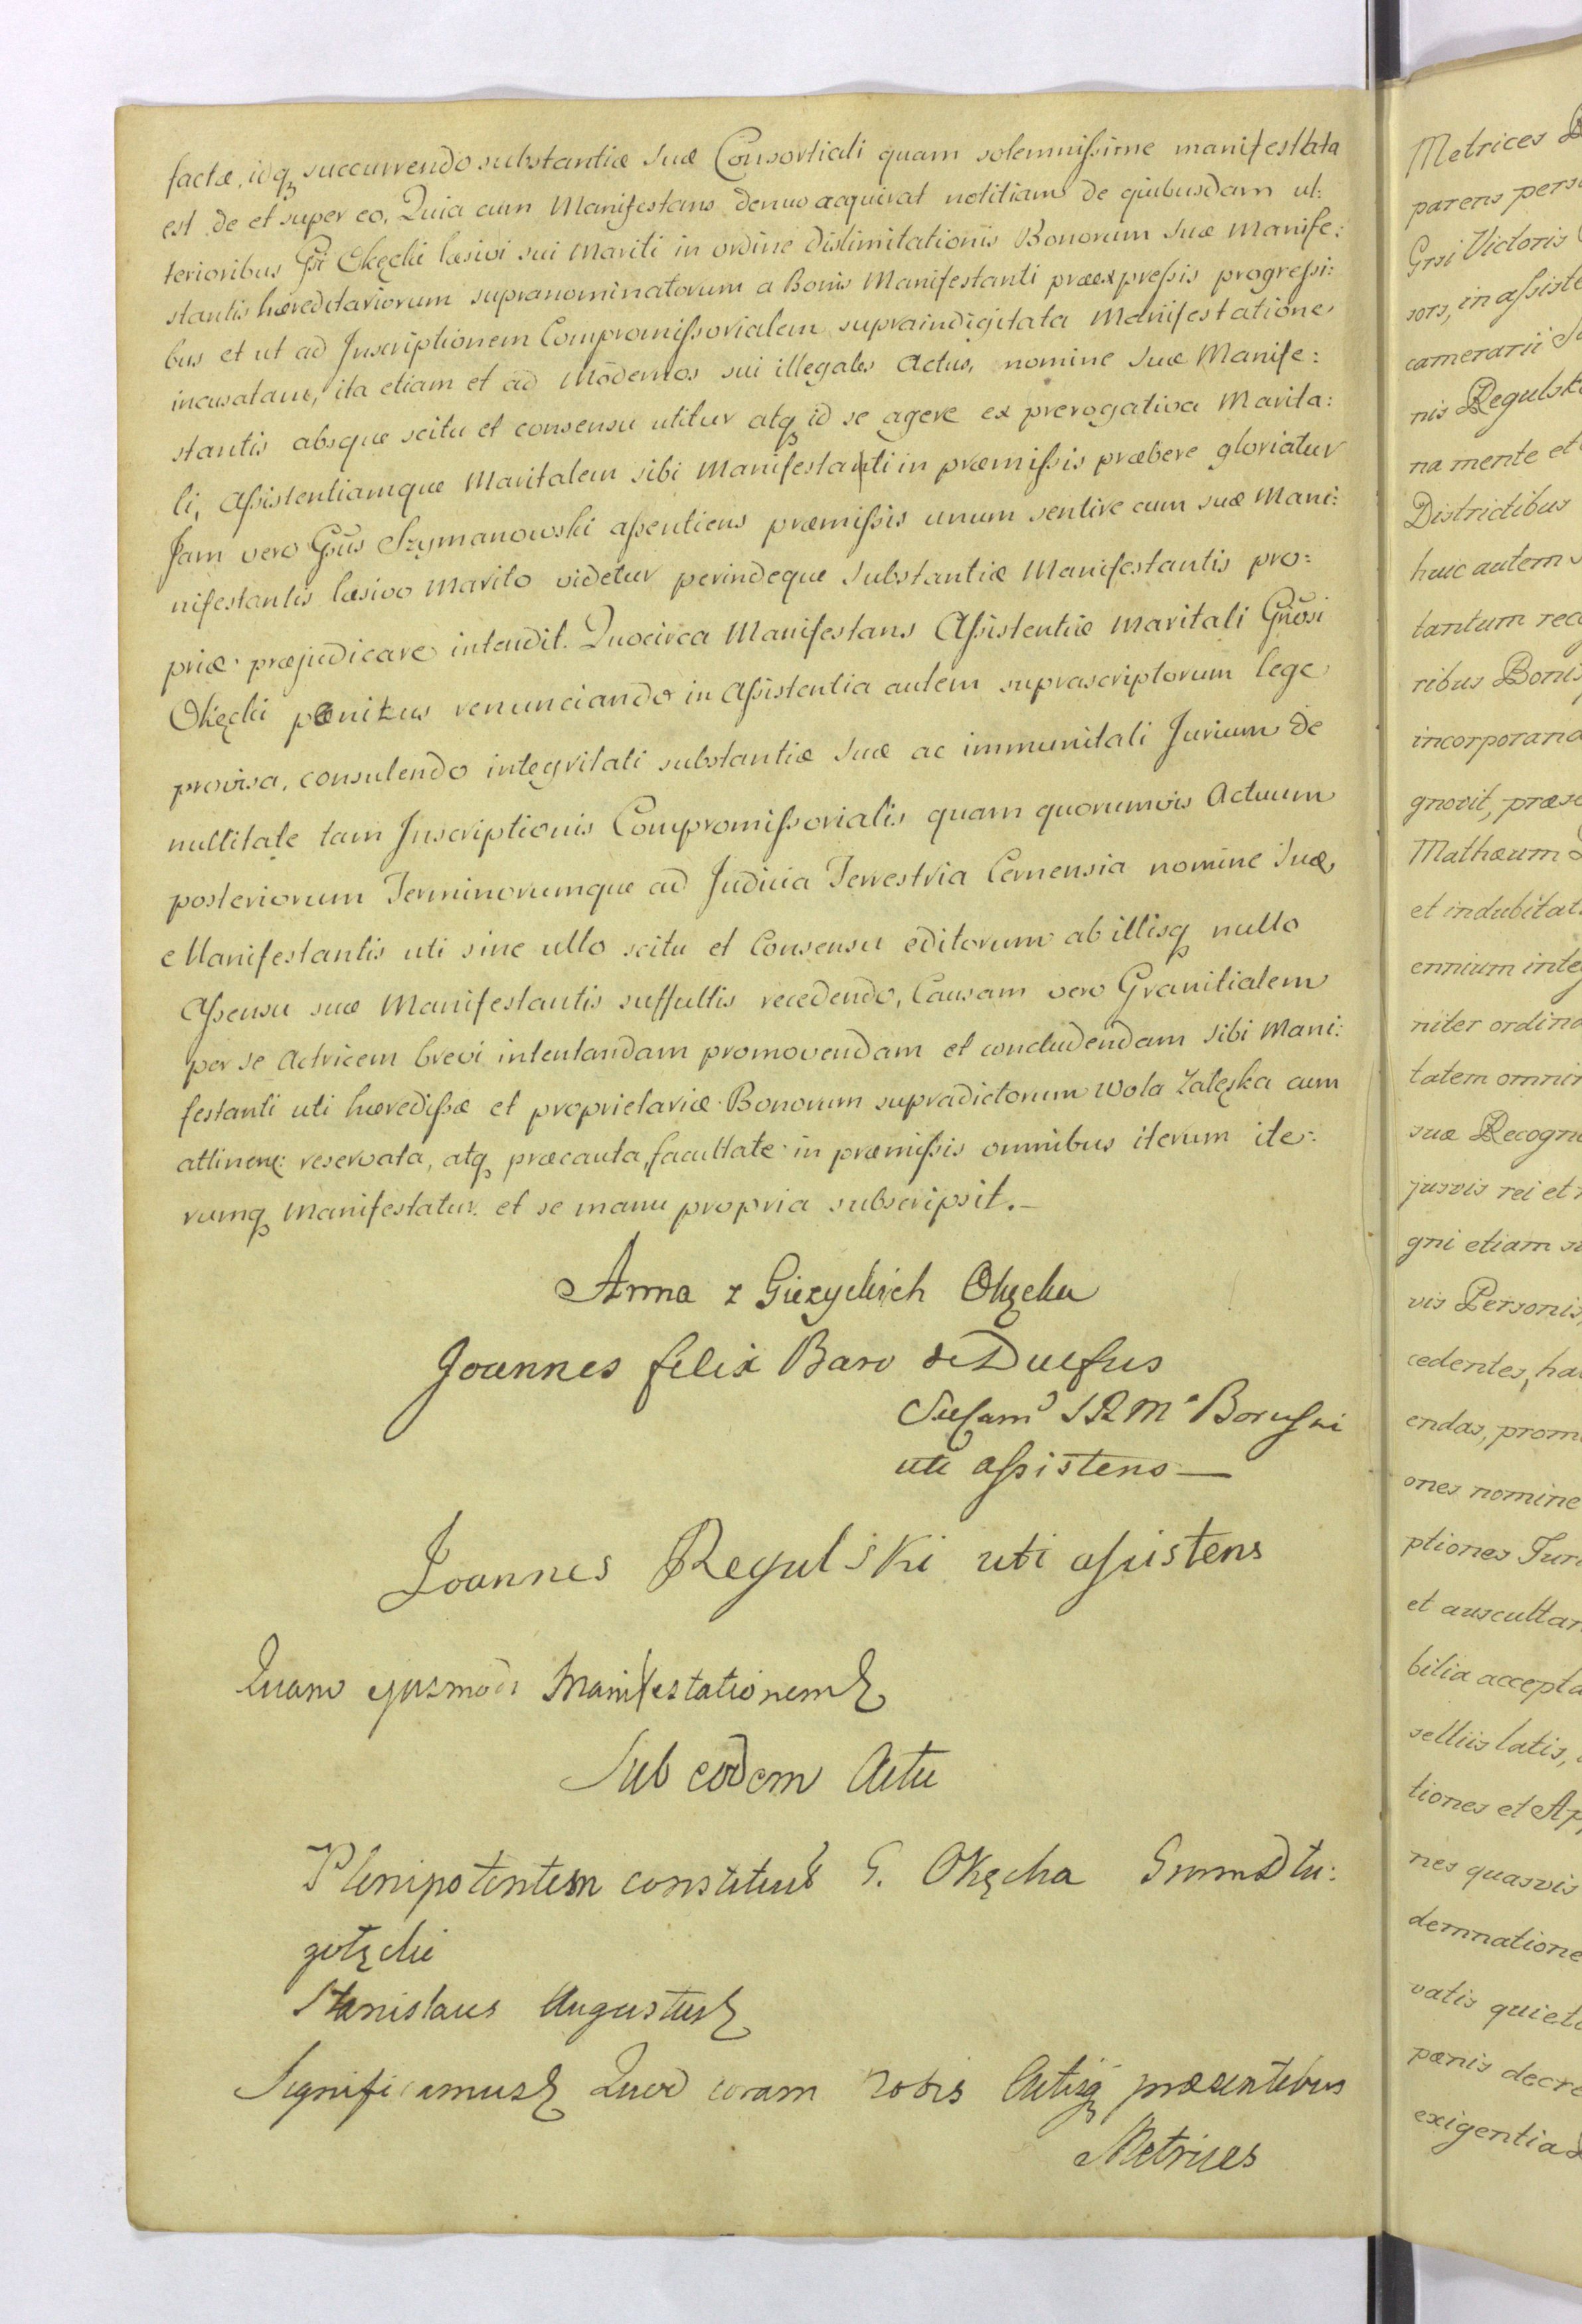 factæ, idq succurrendo substantiæ suæ Consortiali quam solemnissime manifestata
est de et super eo. Quia cum Manifestans denuo acquirat notitiam de quibusdam ul:
terioribus Gsi Okęcki læsivi sui Mariti in ordine dislimitationis Bonorum suæ Manife:
stantis hæreditariorum supranominatorum a Bonis Manifestanti præexpressis progressi:
bus et ut ad Inscriptionem Compromissorialem supraindigitata Manifestatione
incusatam, ita etiam et ad Modernos sui illegales Actus, nomine suæ Manife:
stantis absque scitu et consensu utitur atq id se agere ex prerogativa Marita:
li, Assistentiamque Maritalem sibi Manifestanti in præmissis præbere gloriatur
Jam vero Gsus Szymanowski assentiens præmissis unum sentire cum suæ Mani:
nifestantis læsivo Marito videtur perindeque substantiæ Manifestantis pro:
priæ præjudicare intendit. Quocirca Manifestans Assistentiæ maritali Gnosi
Okęcki pænitus renunciando in Assistentia autem suprascriptorum lege
provisa, consulendo integritati substantiæ suæ ac immunitati Jurium de
nullitate tam Inscriptionis Compromissorialis quam quorumvis Actuum
posteriorum Terminorumque ad Judicia Terrestria Cernensia nomine suæ
Manifestantis uti sine ullo scitu et Consensu editorum ab illisq nullo
Assensu suæ Manifestantis suffultis recedendo, Causam vero Granitialem
per se Actricem brevi intentandam promovendam et concludendam sibi Mani:
festanti uti hæredissæ et proprietariæ Bonorum supradictorum Wola Załęska cum
attinen: reservata, atq præcauta, facultate in præmissis omnibus iterum ite:
rumq manifestatur et se manu propria subscripsit.-
Anna z Giezyckich Okęcka
Joannes felix Baro de Duefus
SRM Borussi
uti assistens —
Joannes Regulski uti assistens
Quam ejusmodi Manifestationem
Sub eodem Actu
Plenipotentem constituit G. Okęcka
Stanislaus Augustus
Significamus Quod coram Nobis Actisq præsentibus
Metrices
Metrices
parens
Grsi Victoris
sors, in
camerarii
nis
na mente et
Districtibus
huic autem
tantum
ribus Bonis
gnovit,
Mathæum
et
ennium
niter
tatem
suæ
jusvis rei et
gni etiam
vis Personis,
cedentes,
endas,
ones nomine
ptiones
et
bilia
selliis latis,
tiones et
nes quasvis
vatis
pænis